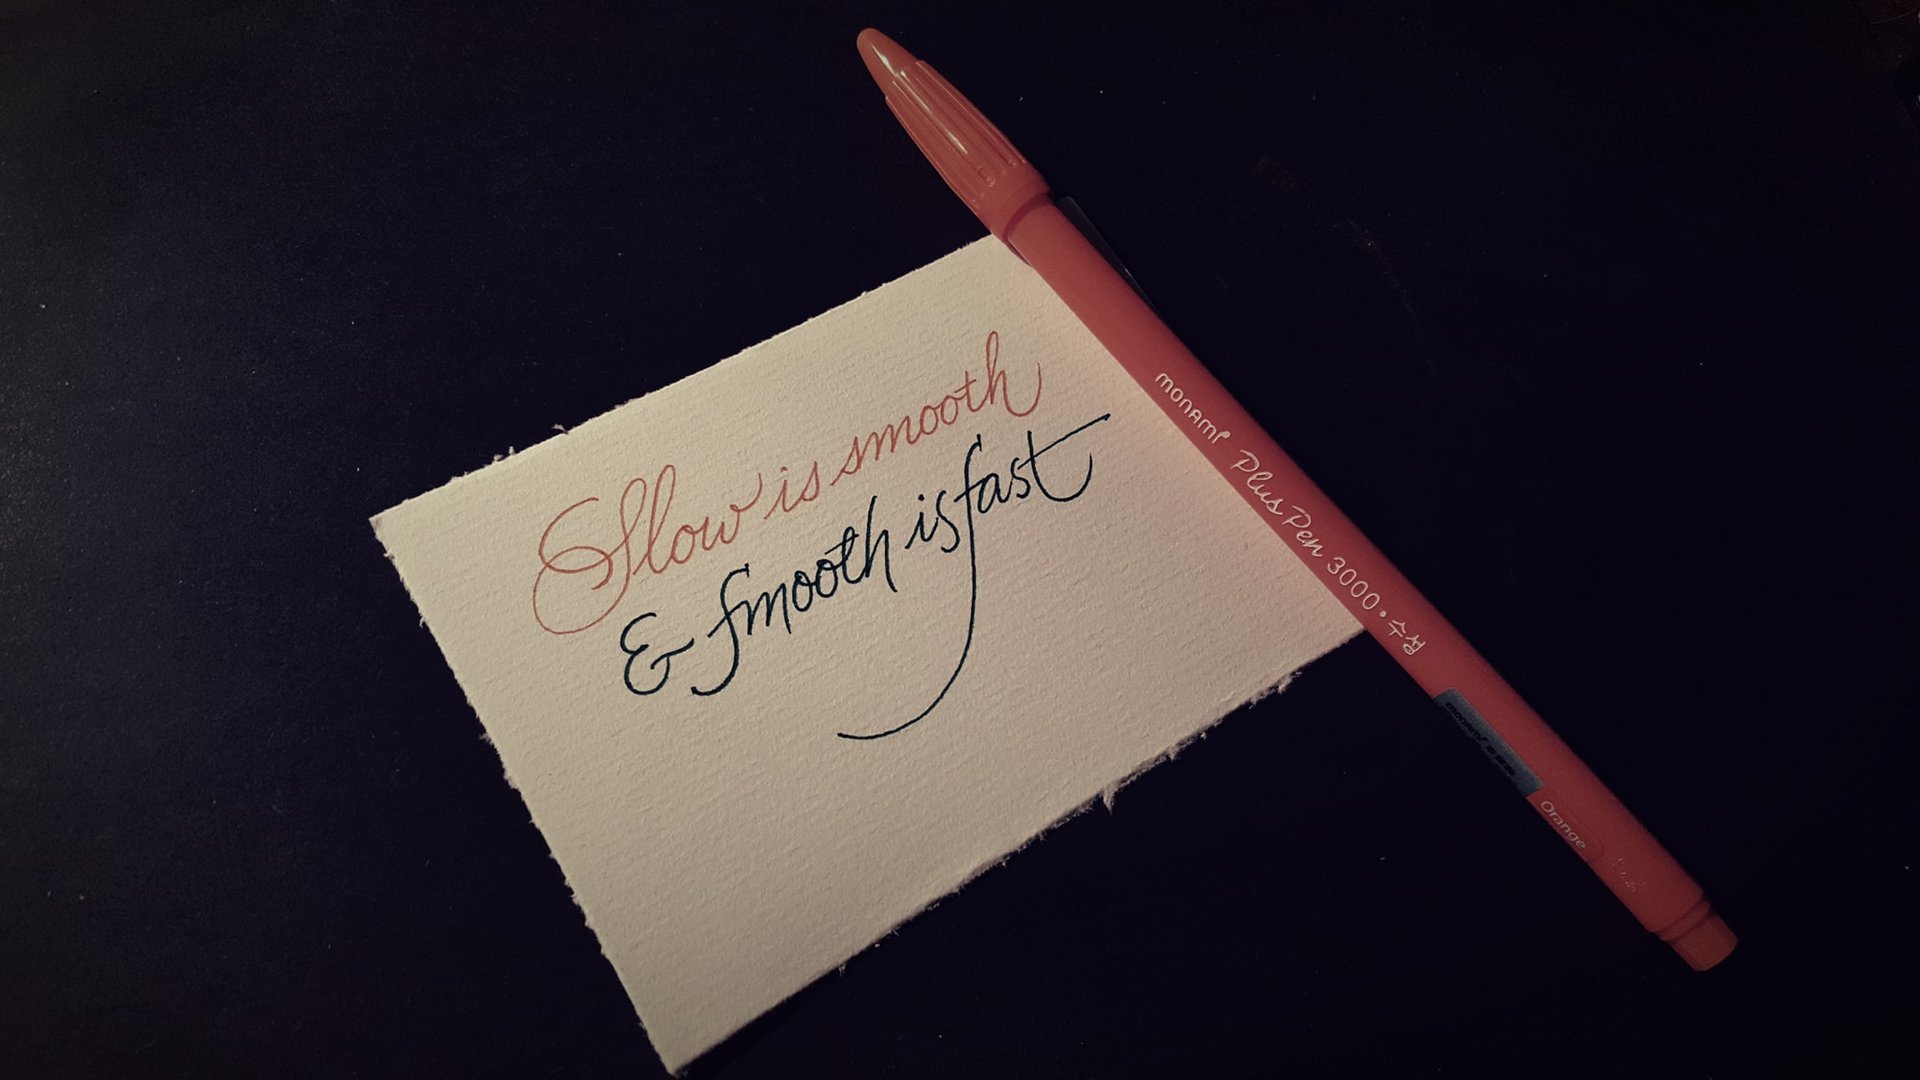 Slow is smooth
& smooth is fast
monami Plus Pen 3000 • 수성
monami
Orange